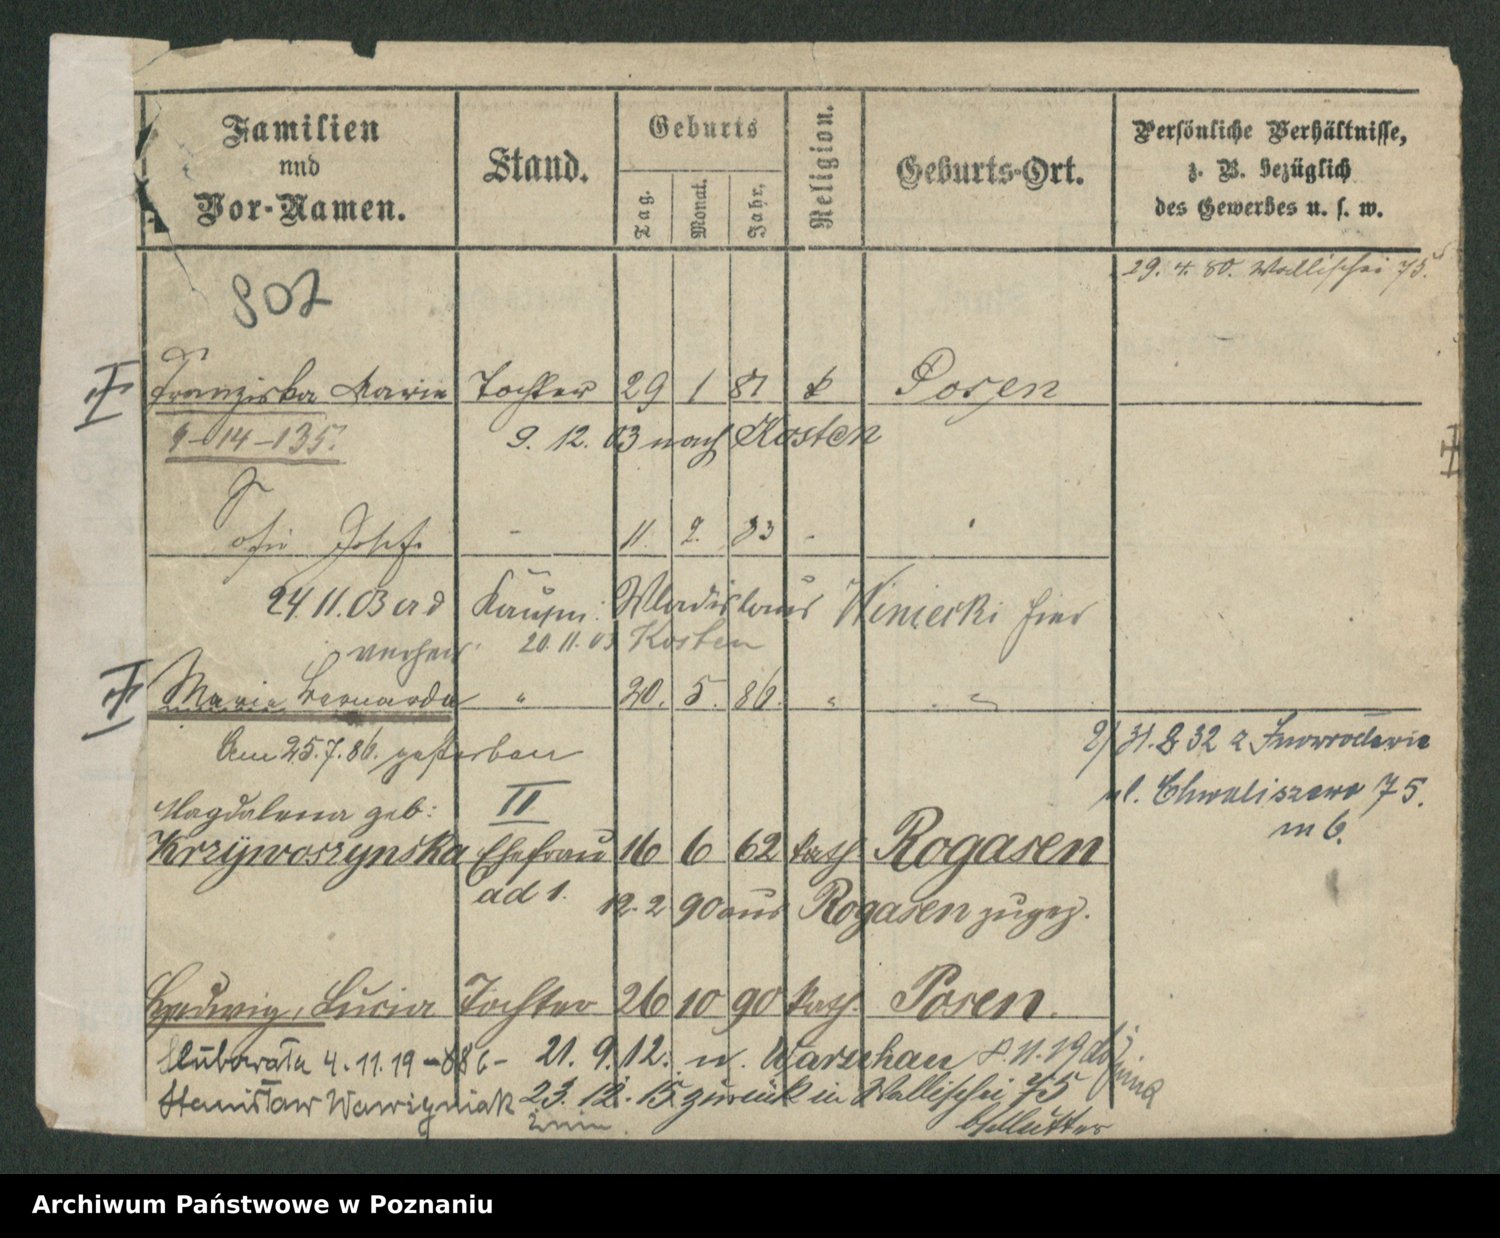 Familien
und
Vor-Namen.
Stand.
Geburts
Tag.
Monat.
Jahr.
Religion.
Geburts-Ort.
Persönliche Verhältnisse,
z. B. bezüglich
des Gewerbes u. s. w.
29. 4. 80. Wallischei 75.
Franziska Marie Tochter 29 1 81 k Posen
9-14-135.
9. 12. 03 nach Kosten
Josef 11. 2. 83
24. 11. 03 ad Kaufm: Wladislaus Winiecki hier
20. 11. 03 Kosten
Maria Bernarda " 20. 5. 86. " "
Am 25. 7. 86. gestorben
2/31. 8 32 z Inowrocławia
ul. Chwaliszewo 75.
m 6.
Magdalena geb: II
Krzywoszynska Ehefrau 16 6 62 kath Rogasen
ad 1. 12. 2 90 aus Rogasen zugez.
Hedwig, Lucia Tochter 26 10 90 kath. Posen.
Ślubowała 4. 11. 19 - 886 - 21. 9. 12. n. Warschau
Stanisław Wawrzyniak 23. 12. 15. zurück in Wallischei 75
b/Mutter
Archiwum Państwowe w Poznaniu